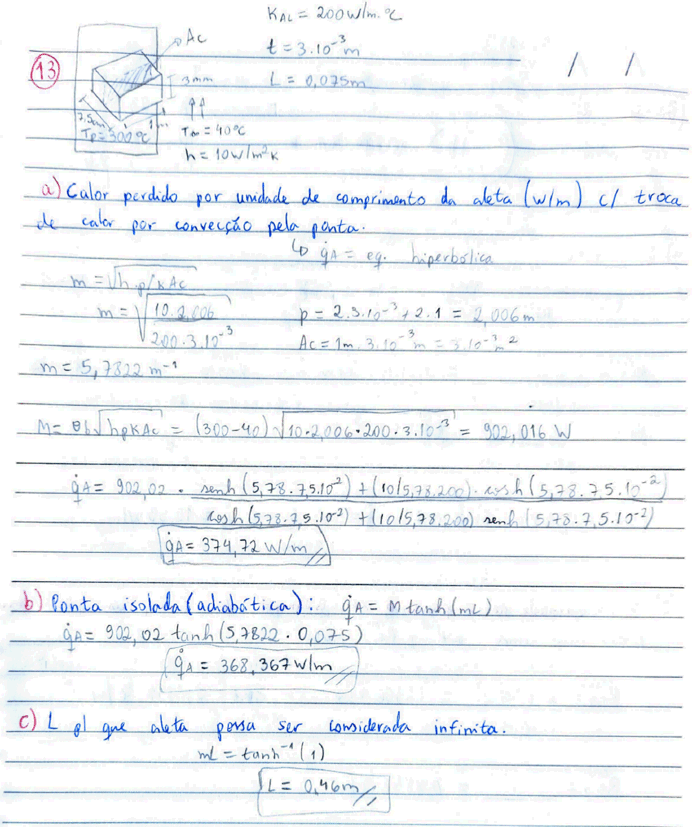 K_AL = 200 W/m.°C
Ac
t = 3.10⁻³ m
13
3 mm
L = 0,075m
7,5cm
1m
Tp = 300°C
T∞ = 40°C
h = 10 W/m²K
a) Calor perdido por unidade de comprimento da aleta (W/m) c/ troca
de calor por convecção pela ponta.
↳ q̇A = eq. hiperbólica
m = √h.p/kAc
m = √10.2,006/200.3.10⁻³
p = 2.3.10⁻³ + 2.1 = 2,006m
Ac = 1m.3.10⁻³m = 3.10⁻³m²
m = 5,7822 m⁻¹
M = θb√hpKAc = (300-40)√10.2,006.200.3.10⁻³ = 902,016 W
q̇A = 902,02 . senh(5,78.7,5.10⁻²)+(10/5,78.200).cosh(5,78.7,5.10⁻²)
cosh(5,78.7,5.10⁻²)+(10/5,78.200) senh(5,78.7,5.10⁻²)
q̇A = 374,72 W/m
b) Ponta isolada (adiabática): q̇A = M tanh(mL)
q̇A = 902,02 tanh(5,7822 . 0,075)
q̇A = 368,367 W/m
c) L p/ que aleta possa ser considerada infinita.
mL = tanh⁻¹(1)
L = 0,46m